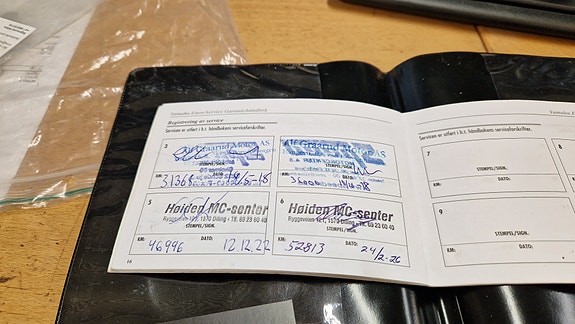 Yamaha Euro-Service Garantihåndbok
Registrering av service
Servicen er utført i h.t. håndbokens serviceforskrifter.
3
Alf Graarud Motor AS
STEMPEL/SIGN.
KM:
DATO:
4
Alf Graarud Motor AS
KM:
DATO:
5
Høiden MC-senter
Ryggeveien 121, 1570 Dilling • Tlf. 69 23 60 40
STEMPEL/SIGN.
KM: 46996 DATO: 12.12.22
6
Høiden MC-senter
Ryggeveien 121, 1570 Dilling • Tlf. 69 23 60 40
STEMPEL/SIGN.
KM: 52813 DATO: 24/2-26
16
Yamaha E
Servicen er utført i h.t. håndbokens serviceforskrifter.
7
STEMPEL/SIGN.
KM: DATO:
8
KM:
9
STEMPEL/SIGN.
KM: DATO:
KM: